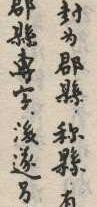 封为郡縣称縣有
郡縣專字後遂